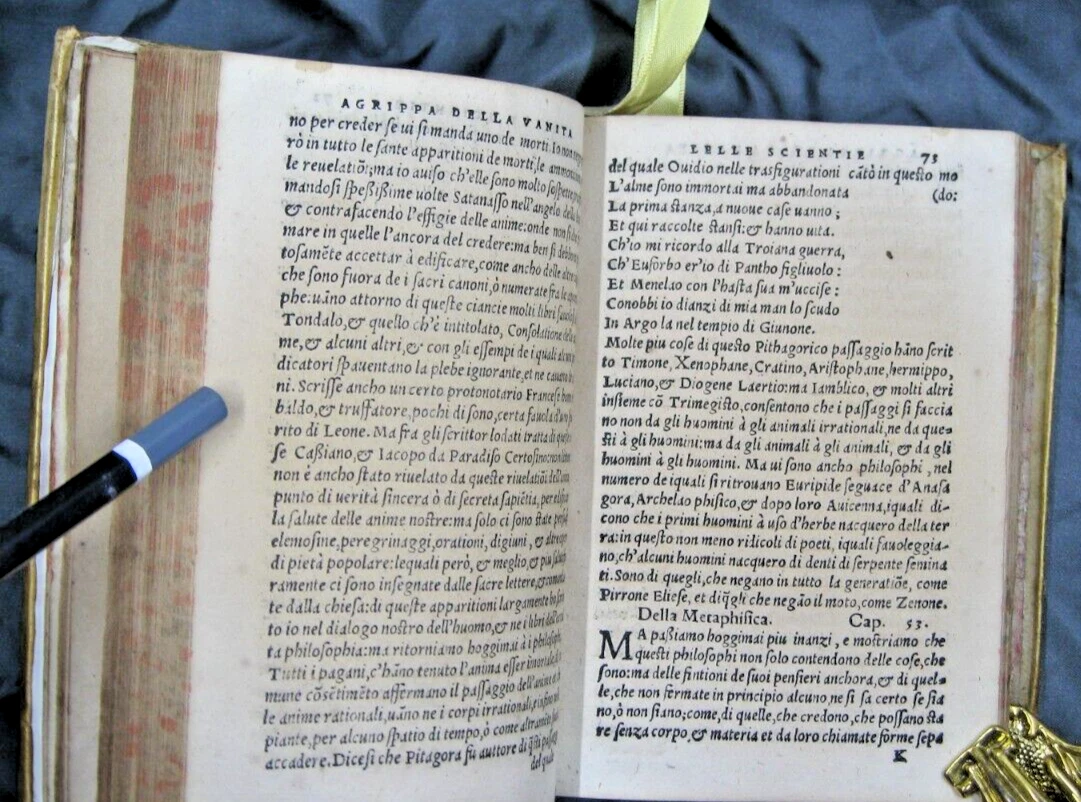 AGRIPPA DELLA VANITA
no per creder se ui si manda uno de morti. Io non
rò in tutto le sante apparitioni de morti, le
le reuelatiõi; ma io auiso ch'elle sono molto
mandosi speßißime uolte Satanasso nell'angelo
& contrafacendo l'effigie delle anime: onde non
mare in quelle l'ancora del credere: ma ben si
tosamẽte accettar à edificare, come ancho delle altre
che sono fuora de i sacri canoni, ò numerate fra le
phe: uãno attorno di queste ciancie molti libri
Tondalo, & quello ch'è intitolato, Consolatione
me, & alcuni altri, & con gli essempi de i quali
dicatori spauentano la plebe ignorante, et ne cauano
ni. Scrisse ancho un certo protonotario Francese
baldo, & truffatore, pochi di sono, certa fauola
rito di Leone. Ma fra gli scrittor lodati tratta di
se Caßiano, & Iacopo da Paradiso Certosino:
non è ancho stato riuelato da queste riuelatiõi
punto di uerità sincera ò di secreta sapiẽtia, per
la salute delle anime nostre: ma solo ci sono state
elemosine, peregrinaggi, orationi, digiuni, &
di pietà popolare: lequali però, & meglio, & piu
ramente ci sono insegnate dalle sacre lettere,
te dalla chiesa: di queste apparitioni largamente
to io nel dialogo nostro dell'huomo, & ne i libri
ta philosophia: ma ritorniamo hoggimai à i
Tutti i pagani, c'hãno tenuto l'anima esser
mune cõsẽtimẽto affermano il passaggio dell'anime
le anime rationali, uãno ne i corpi irrationali,
piante, per alcuno spatio di tempo, ò come
accadere. Dicesi che Pitagora fu auttore di
del qua
LELLE SCIENTIE 73
del quale Ouidio nelle trasfigurationi cãtò in questo mo
L'alme sono immortai ma abbandonata (do:
La prima stanza, a nuoue case uanno;
Et qui raccolte stansi: & hanno uita.
Ch'io mi ricordo alla Troiana guerra,
Ch'Euforbo er'io di Pantho figliuolo:
Et Menelao con l'hasta sua m'uccise:
Conobbi io dianzi di mia man lo scudo
In Argo la nel tempio di Giunone.
Molte piu cose di questo Pithagorico passaggio hãno scrit
to Timone, Xenophane, Cratino, Aristophane, hermippo,
Luciano, & Diogene Laertio: ma Iamblico, & molti altri
insieme cõ Trimegisto, consentono che i passaggi si faccia
no non da gli huomini à gli animali irrationali, ne da que-
sti à gli huomini: ma da gli animali à gli animali, & da gli
huomini à gli huomini. Ma ui sono ancho philosophi, nel
numero de iquali si ritrouano Euripide seguace d'Anasa
gora, Archelao phisico, & dopo loro Auicenna, iquali di-
cono che i primi huomini à uso d'herbe nacquero della ter
ra: in questo non meno ridicoli di poeti, iquali fauoleggia-
no, ch'alcuni huomini nacquero di denti di serpente semina
ti. Sono di quegli, che negano in tutto la generatiõe, come
Pirrone Eliese, et di q̃gli che negão il moto, come Zenone.
Della Metaphisica. Cap. 53.
MA paßiamo hoggimai piu inanzi, e mostriamo che
questi philosophi non solo contendono delle cose, che
sono: ma delle fintioni de suoi pensieri anchora, & di quel-
le, che non fermate in principio alcuno, ne si sa certo se sia
no, ò non siano; come, di quelle, che credono, che possano sta
re senza corpo, & materia et da loro chiamate forme sepa
K